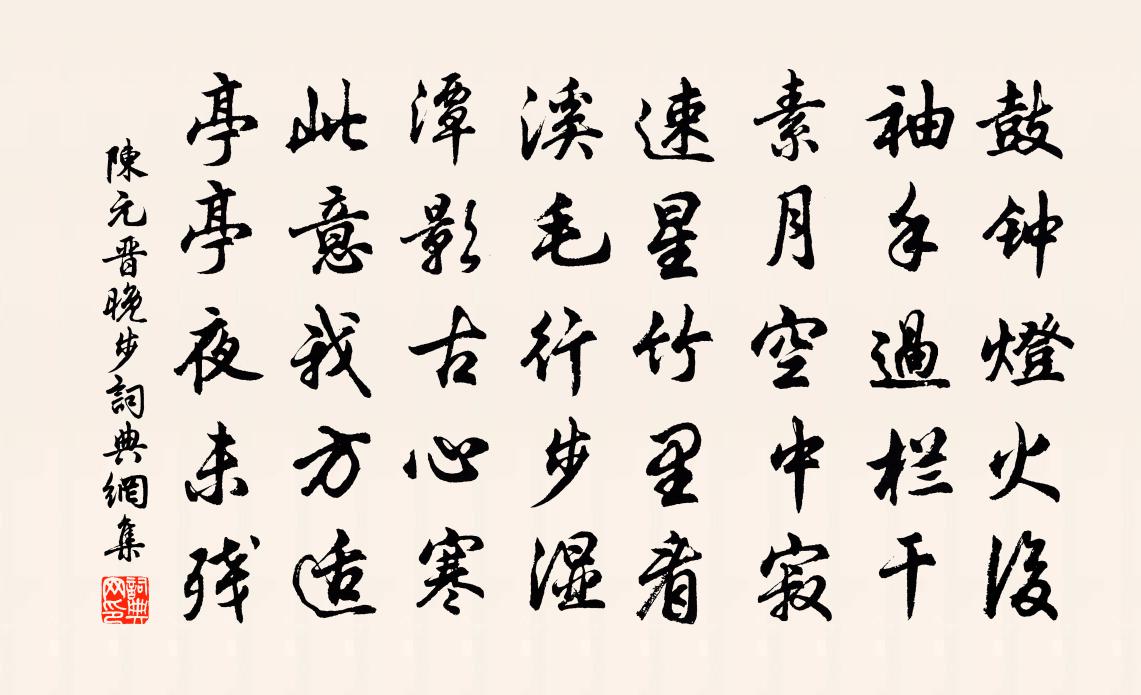 鼓钟燈火後
袖手過栏干
素月空中寂
速星竹里看
溪毛行步湿
潭影古心寒
此意我方适
亭亭夜未残
陳元晋晚步詞典網集
詞典网印